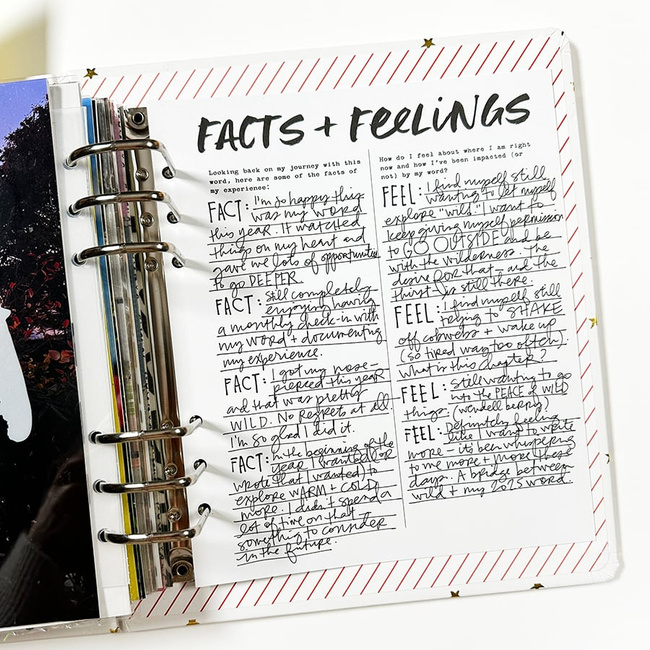 FACTS + FEELINGS
Looking back on my journey with this
word, here are some of the facts of
my experience:
FACT: I'm so happy this
was my word
this year. It matched
things on my heart and
gave me lots of opportunities
to go DEEPER.
FACT: Still completely
enjoying having
a monthly check-in with
my word + documenting
my experience.
FACT: I got my nose
pierced this year
and that was pretty
WILD. No regrets at all.
I'm so glad I did it.
FACT: In the beginning of the
year I wanted (or
wrote that I wanted) to
explore WARM + COLD
more. I didn't spend a
lot of time on that –
something to consider
in the future.
How do I feel about where I am right
now and how I've been impacted (or
not) by my word?
FEEL: I find myself still
wanting to let myself
explore "wild." I want to
keep giving myself permission
to GO OUTSIDE and be
with the wilderness. The
desire for that – and the
thirst is still there.
FEEL: I find myself still
trying to SHAKE
off cobwebs + wake up
(so tired way too often).
What is this chapter?
FEEL: Still wanting to go
into the PEACE of WILD
things. (wendell berry)
FEEL: Definitely feeling
like I want to write
more – it's been whispering
to me more + more these
days. A bridge between
wild + my 2025 word.